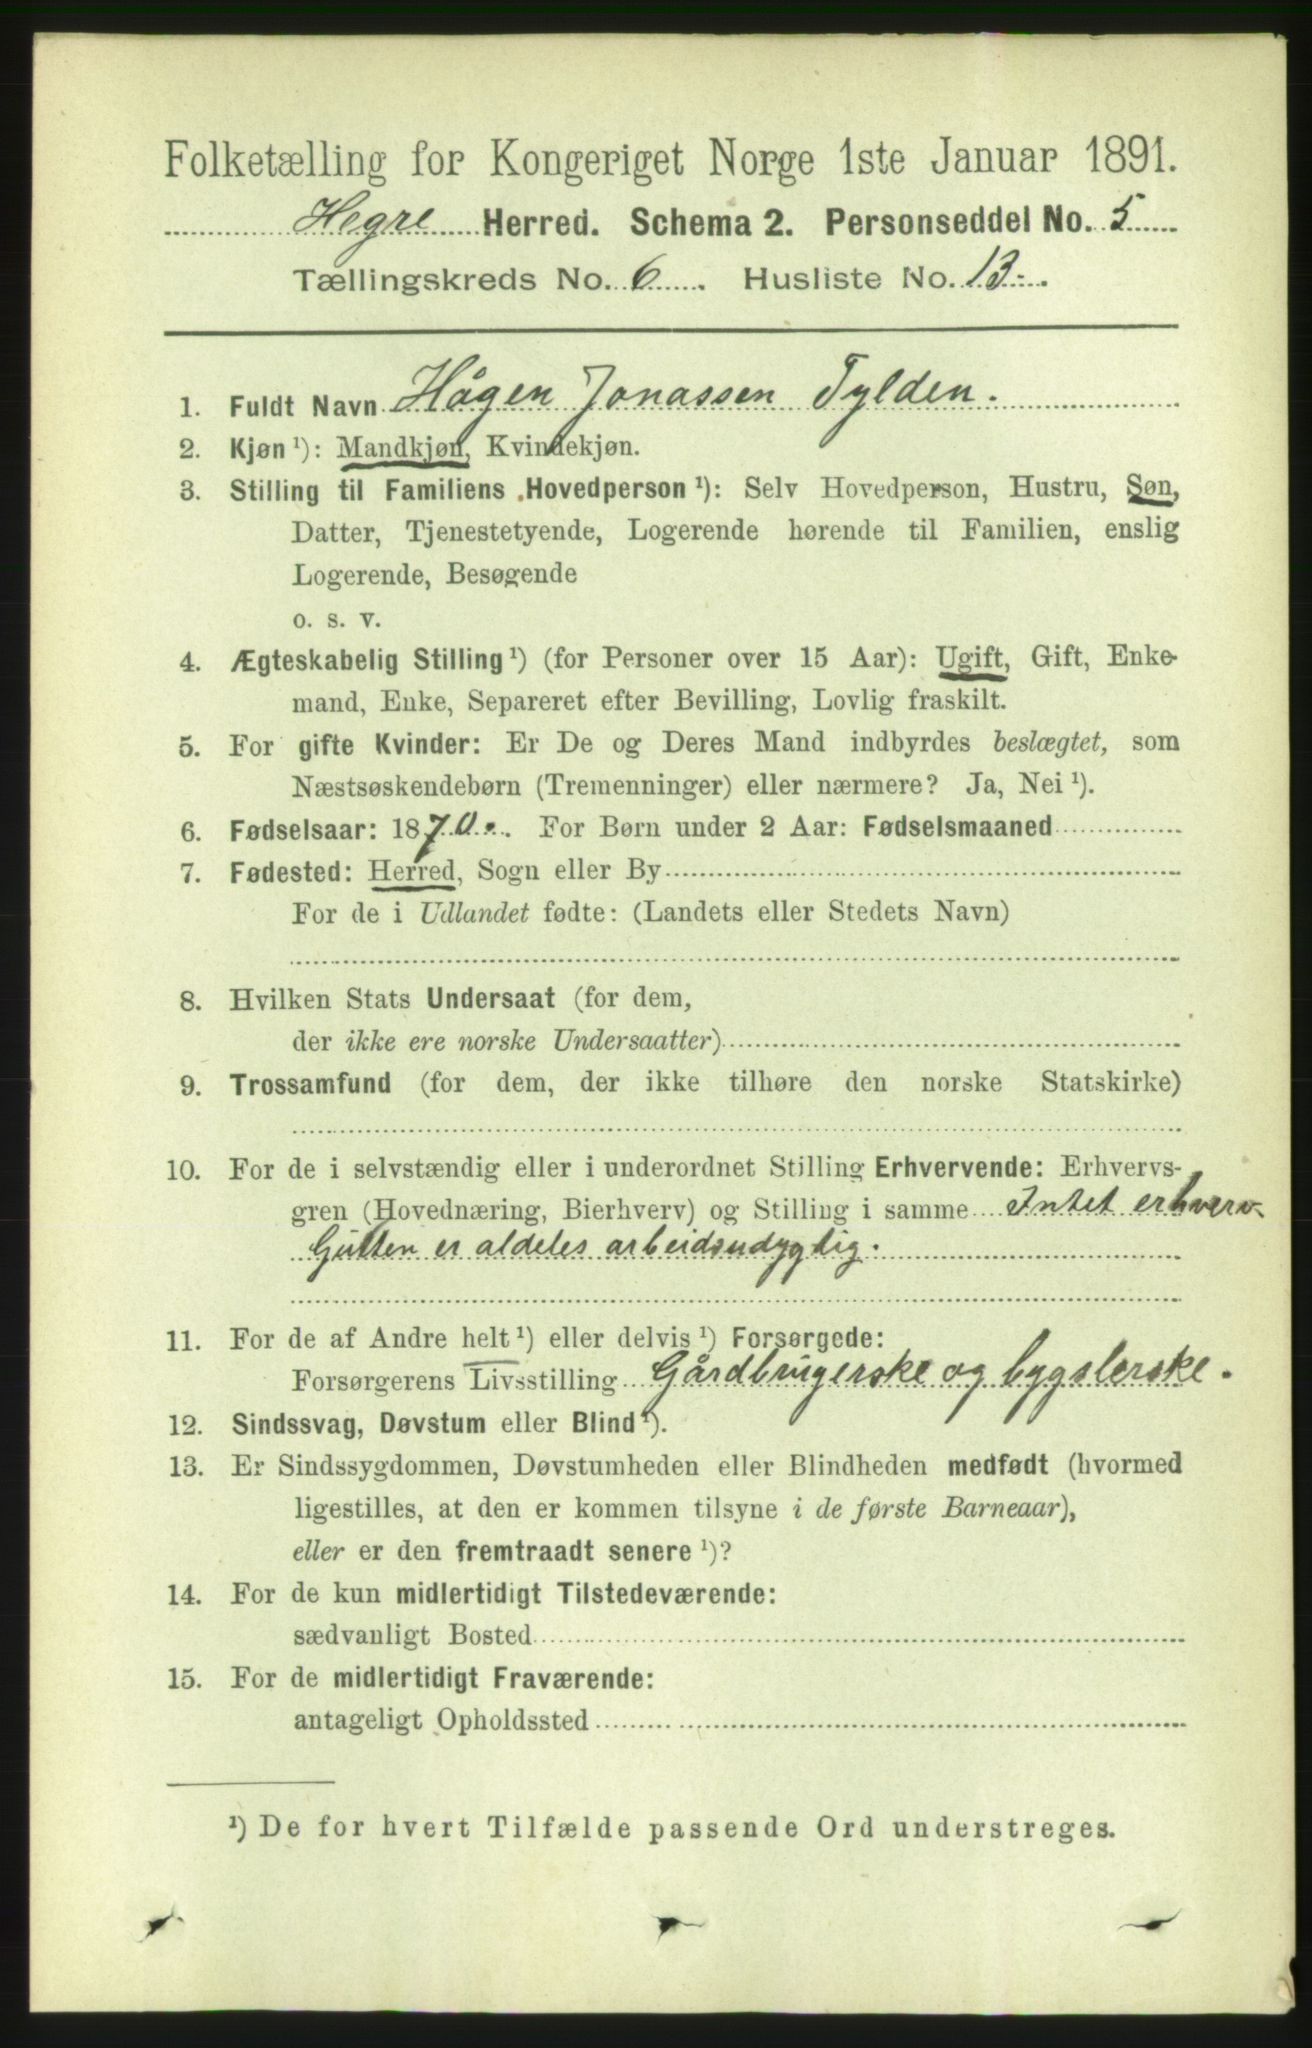 Folketælling for Kongeriget Norge 1ste Januar 1891.
Hegre Herred. Schema 2. Personseddel No. 5
Tællingskreds No. 6. Husliste No. 13.
1. Fuldt Navn Hågen Jonassen Tylden.
2. Kjøn ¹): Mandkjøn, Kvindekjøn.
3. Stilling til Familiens Hovedperson ¹): Selv Hovedperson, Hustru, Søn,
Datter, Tjenestetyende, Logerende hørende til Familien, enslig
Logerende, Besøgende
o. s. v.
4. Ægteskabelig Stilling ¹) (for Personer over 15 Aar): Ugift, Gift, Enke-
mand, Enke, Separeret efter Bevilling, Lovlig fraskilt.
5. For gifte Kvinder: Er De og Deres Mand indbyrdes beslægtet, som
Næstsøskendebørn (Tremenninger) eller nærmere? Ja, Nei ¹).
6. Fødselsaar: 1870. For Børn under 2 Aar: Fødselsmaaned
7. Fødested: Herred, Sogn eller By
For de i Udlandet fødte: (Landets eller Stedets Navn)
8. Hvilken Stats Undersaat (for dem,
der ikke ere norske Undersaatter)
9. Trossamfund (for dem, der ikke tilhøre den norske Statskirke)
10. For de i selvstændig eller i underordnet Stilling Erhvervende: Erhvervs-
gren (Hovednæring, Bierhverv) og Stilling i samme Intet erhverv.
Gutten er aldeles arbeidsudygtig.
11. For de af Andre helt ¹) eller delvis ¹) Forsørgede:
Forsørgerens Livsstilling Gårdbrugerske og bygslerske.
12. Sindssvag, Døvstum eller Blind ¹).
13. Er Sindssygdommen, Døvstumheden eller Blindheden medfødt (hvormed
ligestilles, at den er kommen tilsyne i de første Barneaar),
eller er den fremtraadt senere ¹)?
14. For de kun midlertidigt Tilstedeværende:
sædvanligt Bosted
15. For de midlertidigt Fraværende:
antageligt Opholdssted
¹) De for hvert Tilfælde passende Ord understreges.